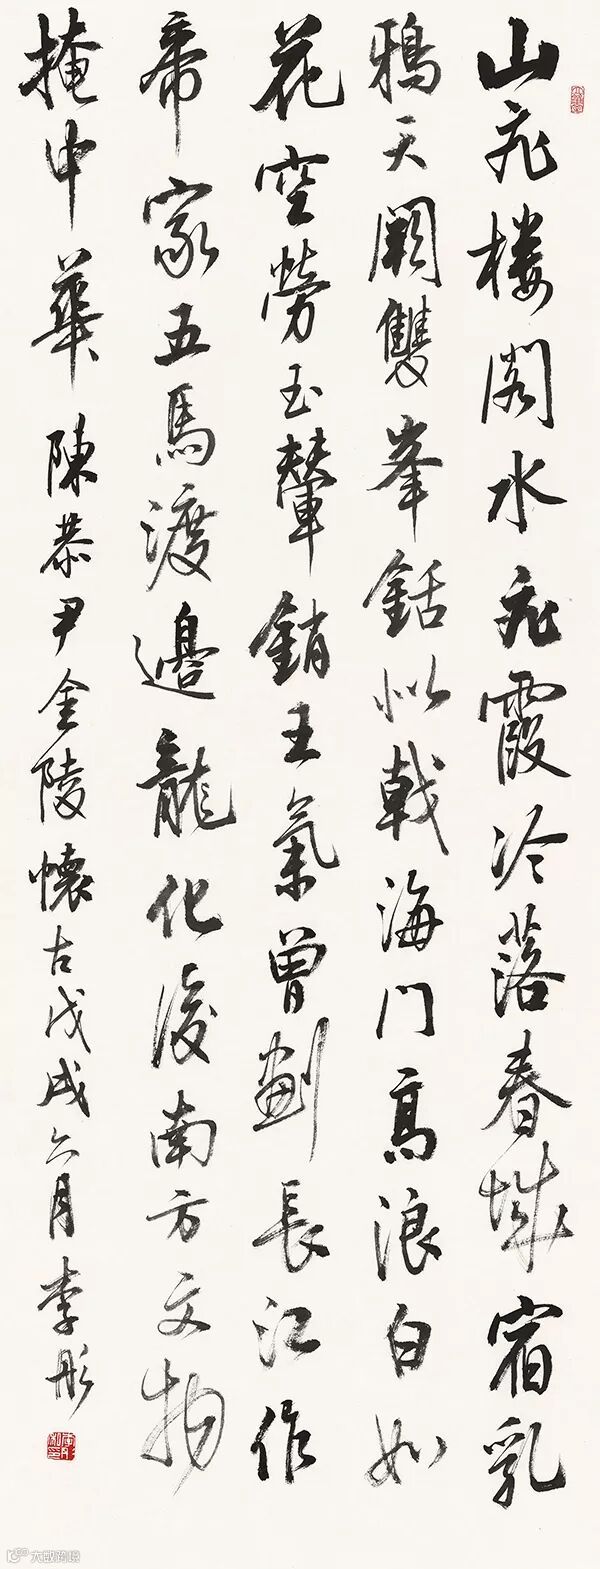 山飛樓閣水飛霞冷落春城宿乳
鴉天闕雙峯銛似戟海門高浪白如
花空勞玉輦銷王氣曾劃長江作
帝家五馬渡邊龍化後南方文物
掩中華 陳恭尹金陵懷古戊戌六月李彤
大数跨境